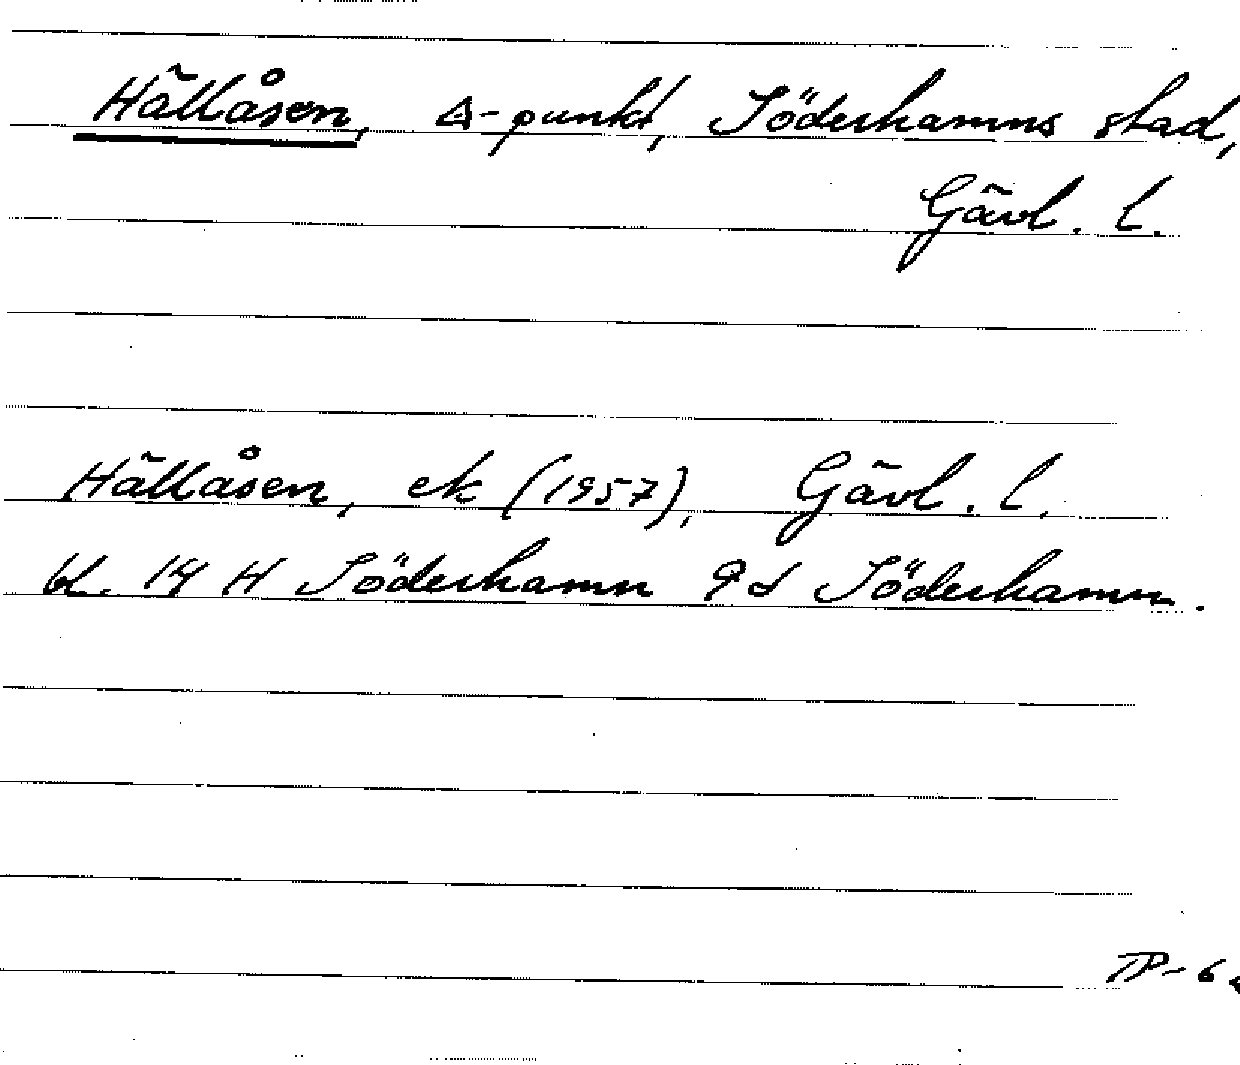 Hällåsen, △-punkt, Söderhamns stad,
Gävl. l.
Hällåsen, ek (1957), Gävl. l.
bl. 14 H Söderhamn 9d Söderhamn.